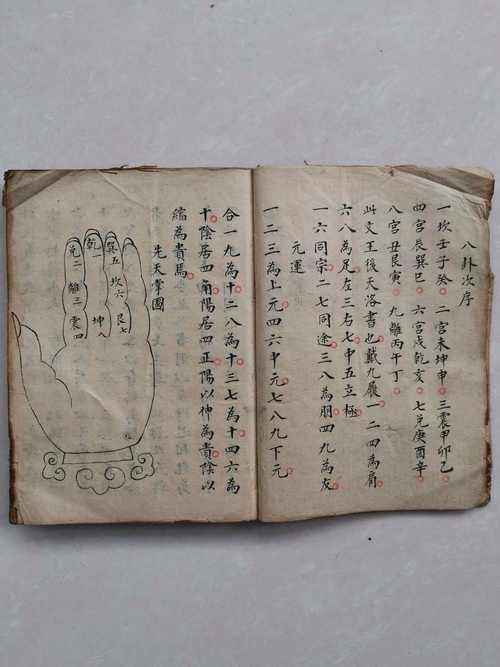 八卦次序
一坎壬子癸。二宮未坤申。三震甲卯乙。
四宮辰巽巳。六宮戌乾亥。七兌庚酉辛。
八宮丑艮寅。九離丙午丁。
此文王後天洛書也戴九履一二四為肩
六八為足左三右七中五立極。
一六同宗二七同途三八為朋四九為友。
元運
一二三為上元四六中元七八九下元
合一九為十二八為十三七為十四六為
十陰居四角陽居四正陽以仲為貴陰以
為貴馬。
先天掌圖
乾一
兌二
離三
震四
巽五
坎六
艮七
坤八